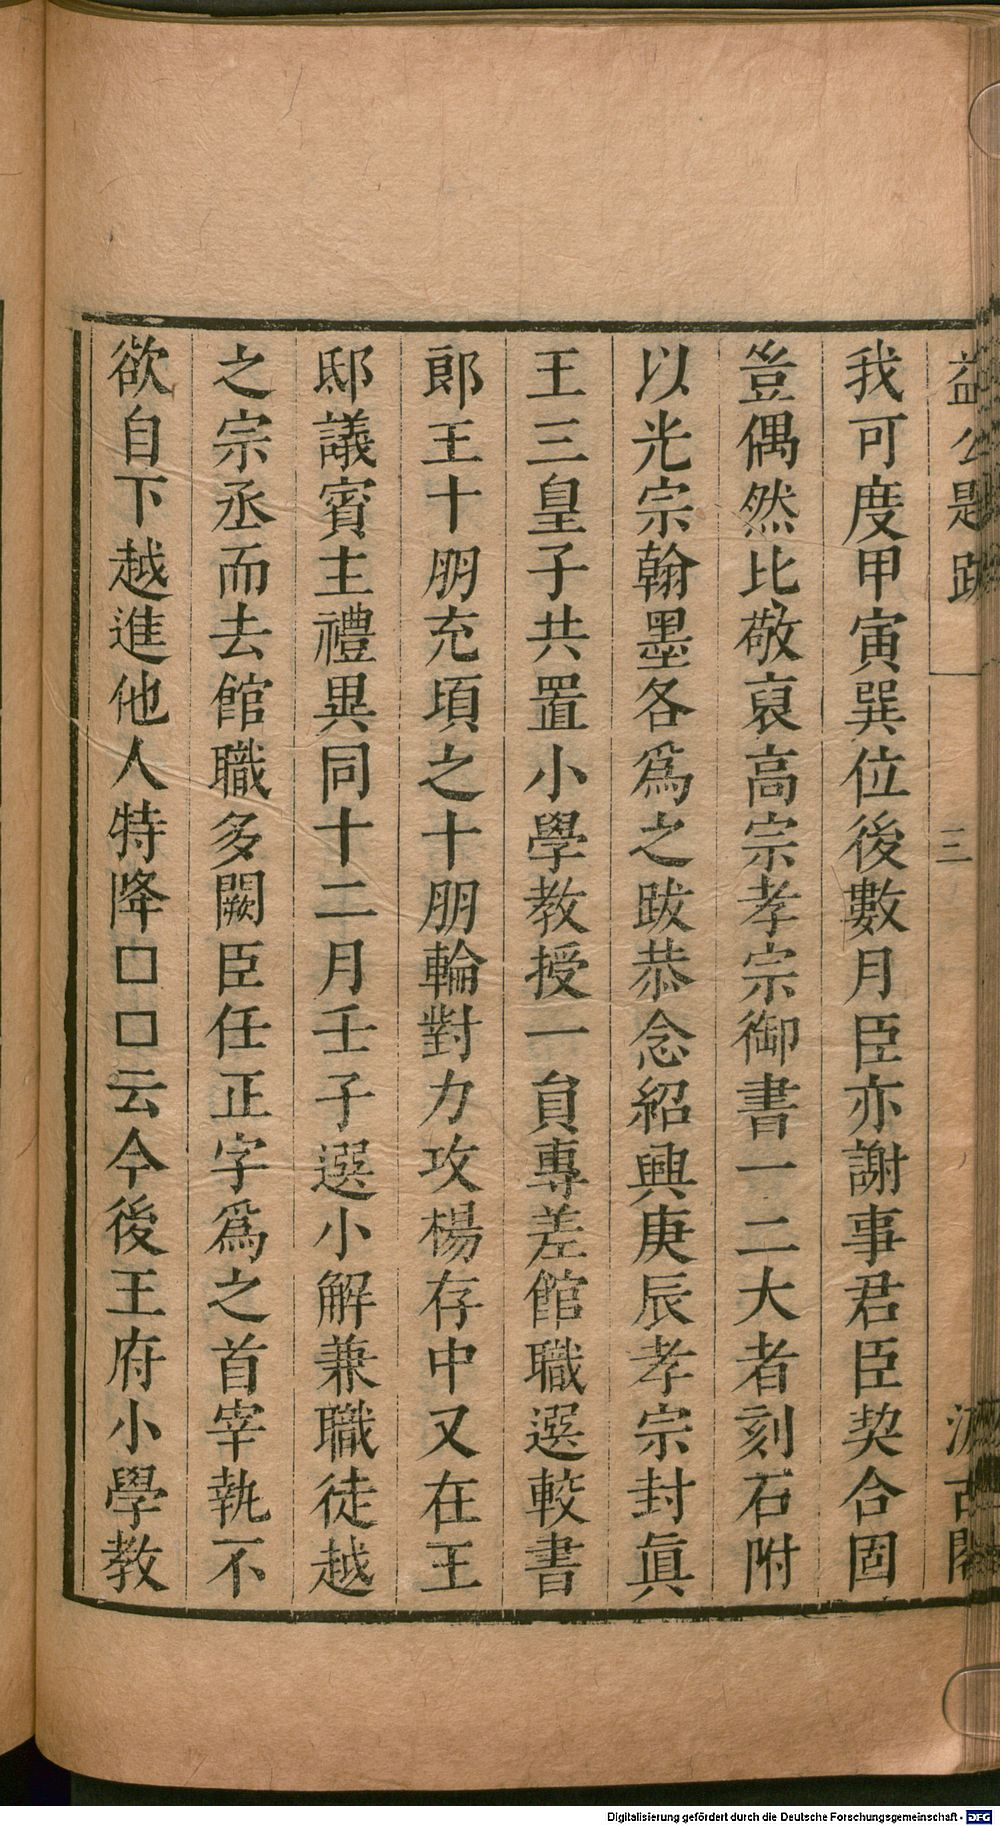 益公題跋 三 汲古閣
我可度甲寅巽位後數月臣亦謝事君臣契合固
豈偶然比敬裒高宗孝宗御書一二大者刻石附
以光宗翰墨各爲之跋恭念紹興庚辰孝宗封眞
王三皇子共置小學教授一貟專差館職選較書
郎王十朋充頃之十朋輪對力攻楊存中又在王
邸議賓主禮異同十二月壬子選小解兼職徒越
之宗丞而去館職多闕臣任正字爲之首宰執不
欲自下越進他人特降□□云今後王府小學教
Digitalisierung gefördert durch die Deutsche Forschungsgemeinschaft - DFG